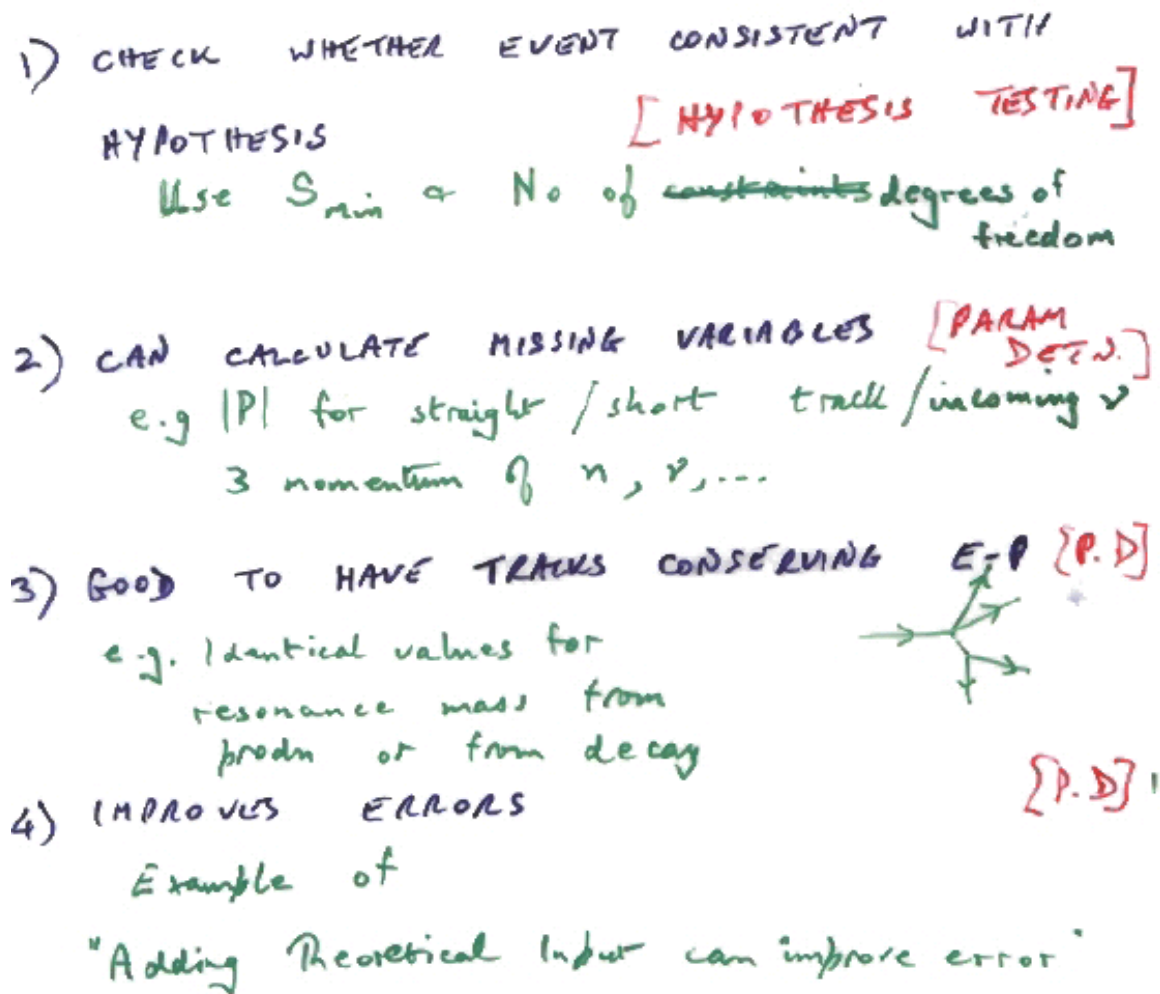 1) CHECK WHETHER EVENT CONSISTENT WITH
HYPOTHESIS [HYPOTHESIS TESTING]
Use Smin & No of constraints degrees of
freedom
2) CAN CALCULATE MISSING VARIABLES [PARAM
DETN.]
e.g |P| for straight / short track / incoming ν
3 momentum of n, ν, ...
3) GOOD TO HAVE TRACKS CONSERVING E-P [P.D]
e.g. Identical values for
resonance mass from
prodn or from decay
[P.D]
4) IMPROVES ERRORS
Example of
"Adding Theoretical Input can improve error"